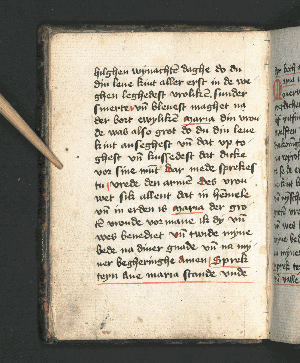 hilghen wynachtē daghe do du
din leue kint aller erst in de we
ghen leghedest vroliken, sunder
smerte vn̄ bleuest maghet na
der bort ewyliken maria din vrou
de was also grot do du din leue
kint anseghest vn̄ dat up to
ghest vn̄ kussedest dat dicke
vor sine mūt dar mede sprekes
tu vrede den armen des vrou
wet sik allent dat in hēmele
vn̄ in erden is maria der gro
ten vroude vor mane ik dy vn̄
wes benediet vn̄ twide myne
bede na diner gnade vn̄ na my
ner begheringhe Amen Sprek
teyn Aue maria stande vnde